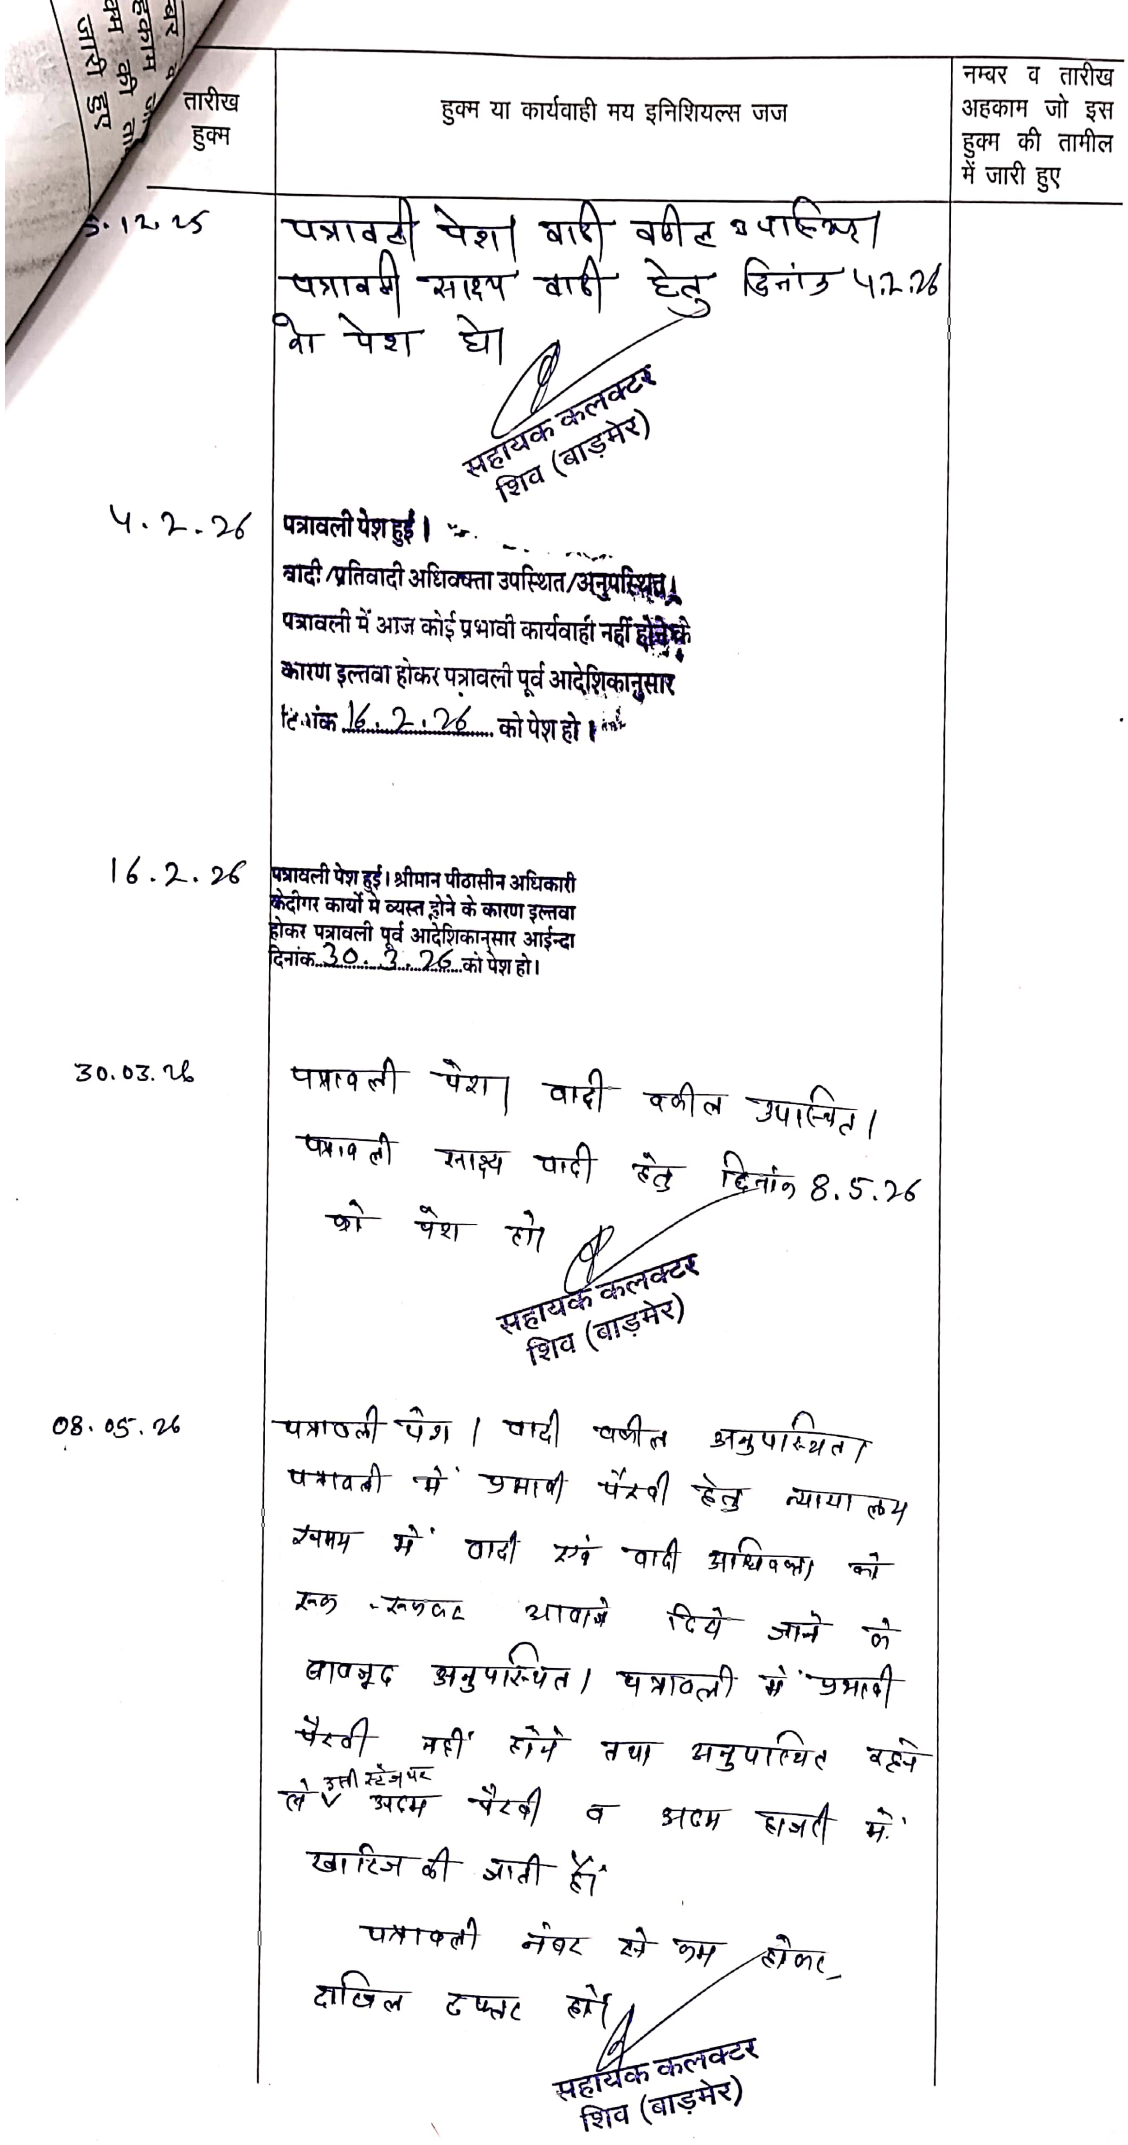 तारीख
हुक्म
हुक्म या कार्यवाही मय इनिशियल्स जज
नम्बर व तारीख
अहकाम जो इस
हुक्म की तामील
में जारी हुए
5.12.25
पत्रावली पेश। वादी वकील उपस्थित।
पत्रावली साक्ष्य वादी हेतु दिनांक 4.2.26
को पेश हो।
सहायक कलक्टर
शिव (बाड़मेर)
4.2.26
पत्रावली पेश हुई।
वादी/प्रतिवादी अधिवक्ता उपस्थित/अनुपस्थित।
पत्रावली में आज कोई प्रभावी कार्यवाही नहीं होने के
कारण इल्तवा होकर पत्रावली पूर्व आदेशिकानुसार
दिनांक 16.2.26 को पेश हो।
16.2.26
पत्रावली पेश हुई। श्रीमान पीठासीन अधिकारी
के दीगर कार्यो मे व्यस्त होने के कारण इल्तवा
होकर पत्रावली पूर्व आदेशिकानुसार आईन्दा
दिनांक 30.3.26 को पेश हो।
30.03.26
पत्रावली पेश। वादी वकील उपस्थित।
पत्रावली साक्ष्य वादी हेतु दिनांक 8.5.26
को पेश हो।
सहायक कलक्टर
शिव (बाड़मेर)
08.05.26
पत्रावली पेश। वादी वकील अनुपस्थित।
पत्रावली में प्रभावी पैरवी हेतु न्यायालय
समय में वादी एवं वादी अधिवक्ता को
रूक-रूककर आवाजे दिये जाने के
बावजूद अनुपस्थित। पत्रावली में प्रभावी
पैरवी नहीं होने तथा अनुपस्थित रहने
से उसी स्टेज पर अदम पैरवी व अदम हाजरी में
खारिज की जाती हैं।
पत्रावली नंबर से कम होकर
दाखिल दफ्तर हो।
सहायक कलक्टर
शिव (बाड़मेर)